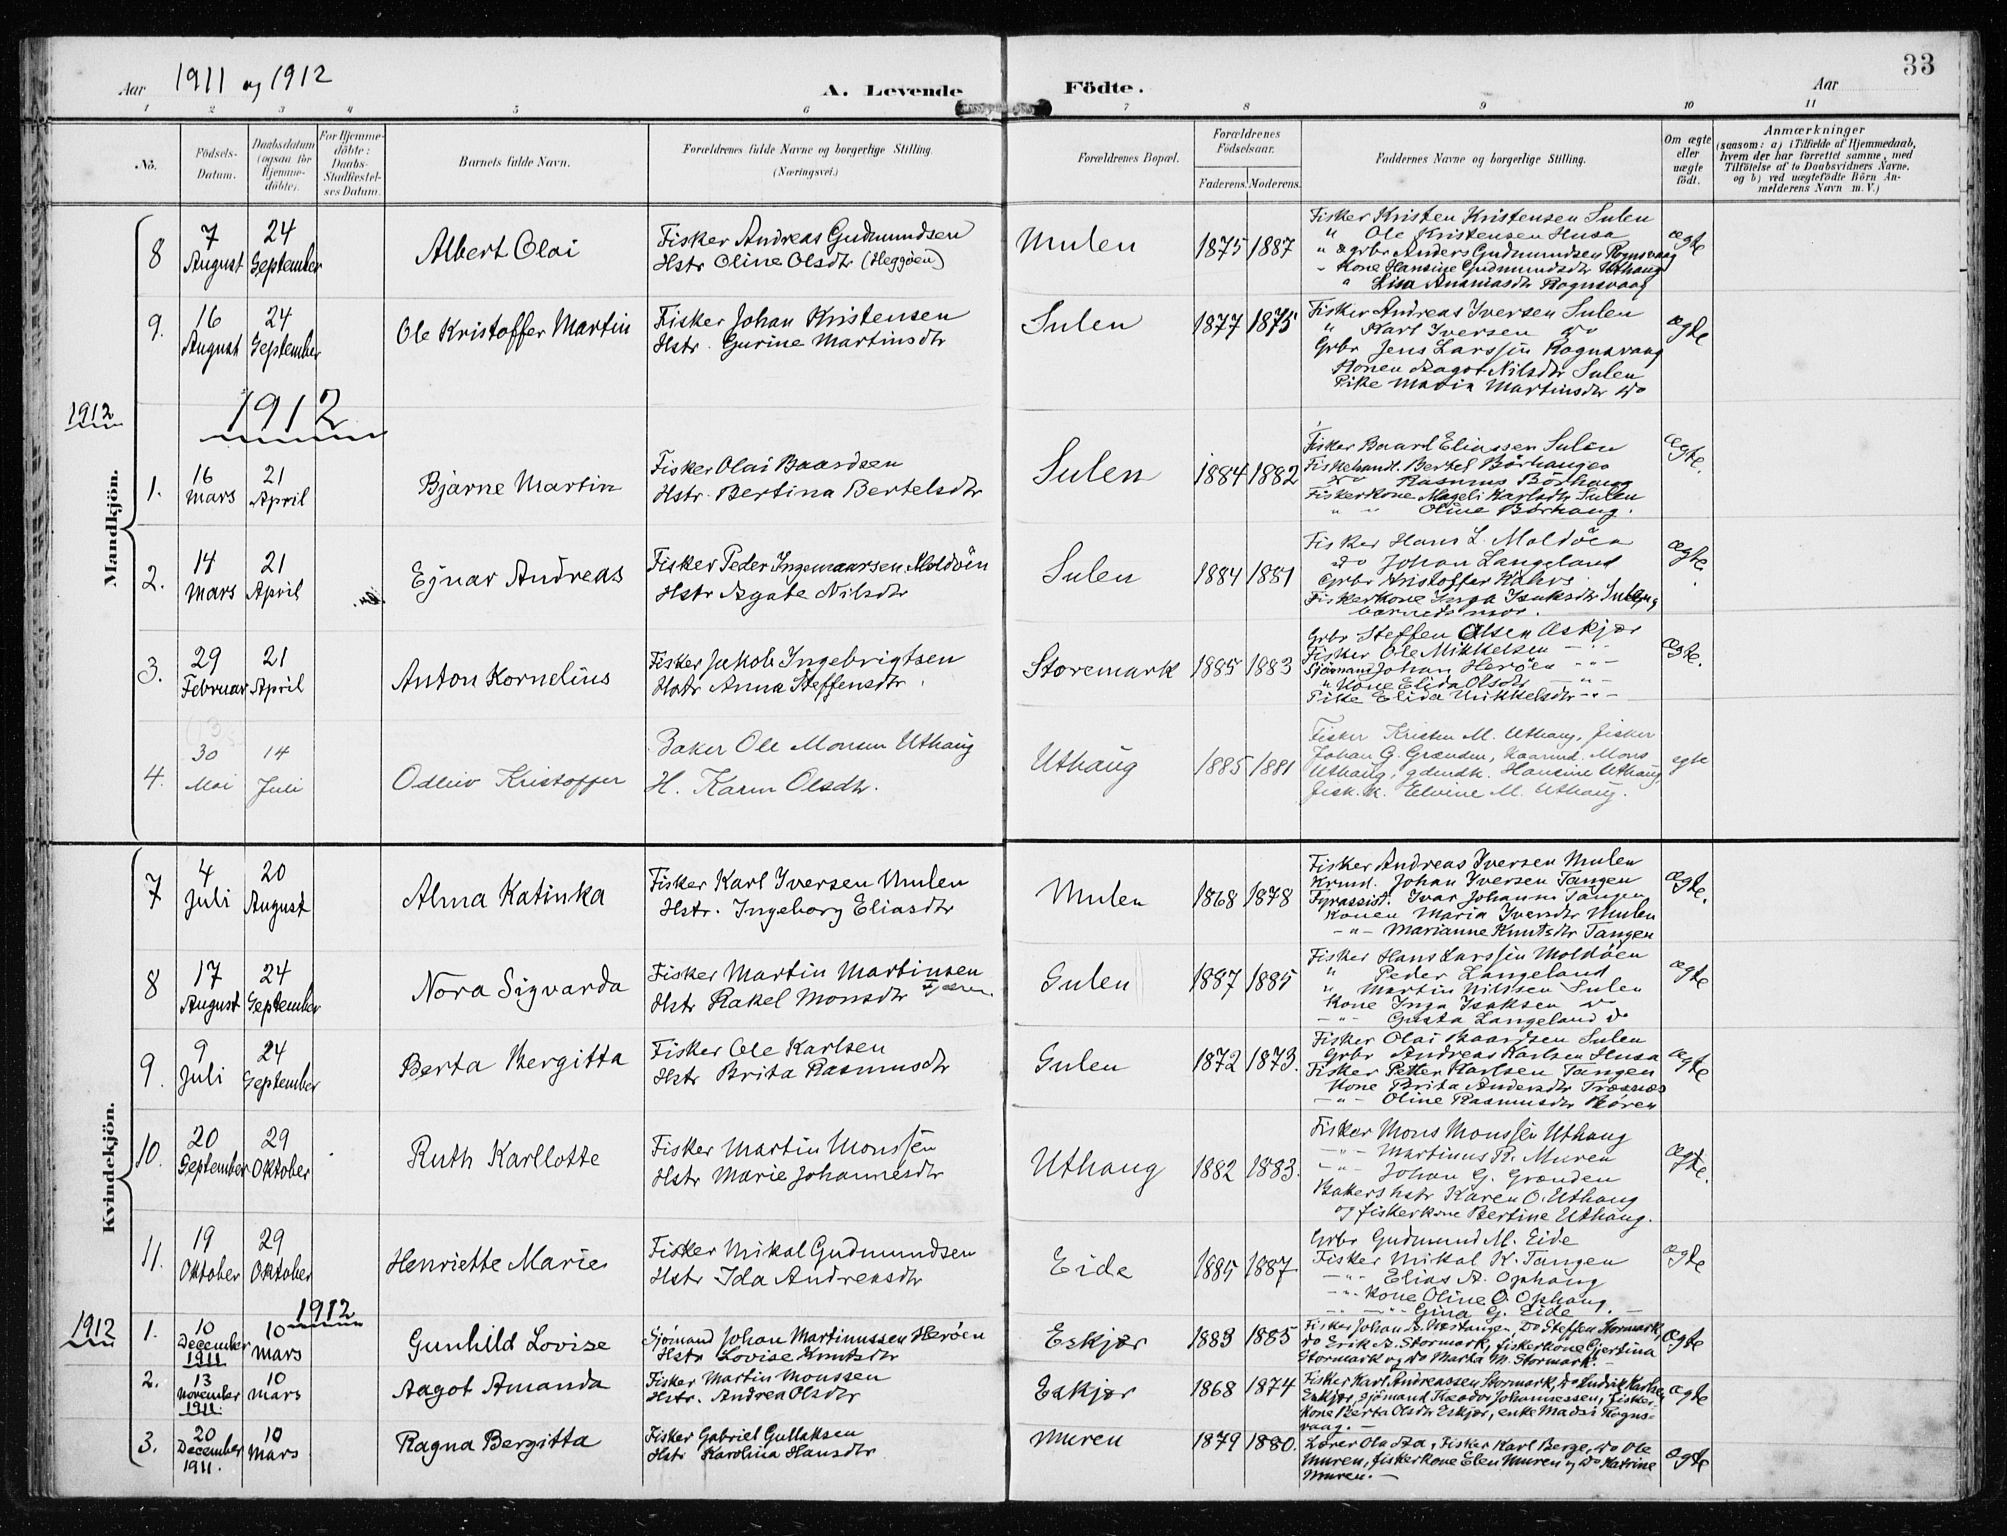 33
Aar 1911 og 1912 A. Levende Födte. Aar
1 2 3 4 5 6 7 8 9 10 11
No. Födsels-Datum. Daabsdatum (ogsaa for Hjemmedöbte). For Hjemmedöbte: Daabs-Stadfæstelses Datum. Barnets fulde Navn. Forældrenes fulde Navne og borgerlige Stilling. (Næringsvei.) Forældrenes Bopæl. Forældrenes Födselsaar. Faderens. Moderens. Faddernes Navne og borgerlige Stilling. Om ægte eller uægte födt. Anmærkninger (saasom: a) i Tilfælde af Hjemmedaab, hvem der har forrettet samme, med Tilföielse af to Daabsvidners Navne, og b) ved uægtefödte Börn Anmelderens Navn m. V.)
Mandkjön.
8 7 August 24 September Albert Olai
Fisker Andreas Gudmundsen
Hstr Oline Olsdtr (Heggöen)
Mulen 1875 1887
Fisker Kristen Kristensen Sulen
" Ole Kristensen Husa
" & grbr Anders Gudmundsen Rognsvaag
" Kone Hansine Gudmundsdtr Uthaug
" Lisa Ananiasdtr Rognsvaag
ægte
9. 16 August 24 September Ole Kristoffer Martin
Fisker Johan Kristensen
Hstr. Gurine Martinsdtr
Sulen 1877 1875
Fisker Andreas Iversen Sulen
" Karl Iversen do
Grbr Jens Larssen Rognsvaag
Konen Aagot Nilsdtr Sulen
Pike Maria Martinsdtr do
ægte
1912
1912
1. 16 Mars 21 April Bjarne Martin
Fisker Olai Baardsen
Hstr. Bertina Bertelsdtr
Sulen 1884 1882
Fisker Baard Eliassen Sulen
Fiskehandl. Bertel Börhaugen
do Rasmus Börhaug
Fiskerkone Mageli Karlsdtr Sulen
" " Oline Börhaug.
Ægte.
2. 14 Mars 21 April Ejnar Andreas
Fisker Peder Ingemaarsen Moldöin
Hstr Agate Nilsdtr
Sulen 1884 1881
Fisker Hans L. Moldöen
do Johan Langeland
Grbr Kristoffer
Fiskerkone Inga Isaksdtr Sulen og
barnets mor.
Ægte.
3. 29 Februar 21 April Anton Kornelius
Fisker Jakob Ingebrigtsen
Hstr Anna Steffensdtr
Storemark 1885 1883
Grbr Steffen Olsen Eskjær
Fisker Ole Mikkelsen - " -
Sjömand Johan Heröen - " -
" Kone Elida Olsdtr - " -
Pike Elida Mikkelsdtr - " -
Ægte.
4. 30 Mai 14 Juli Odleiv Kristoffer
Baker Ole Monsen Uthaug
H. Karen Olsdtr.
Uthaug 1885 1881
Fisker Kristen M. Uthaug, fisker
Johan G. Grænden, Kaarmd. Mons
Uthaug, gdmdk. Hansine Uthaug,
fisk. k. Elvine M. Uthaug.
egte
Kvindekjön.
7 4 Juli 20 August Alma Katinka
Fisker Karl Iversen Mulen
Hstr. Ingeborg Eliasdtr
Mulen 1868 1878
Fisker Andreas Iversen Mulen
Krmd. Johan Iversen Tangen
Fyrassist. Ivar Johansen Tangen
Konen Maria Iversdtr Mulen
- " - Marianne Knutsdtr Tangen
ægte.
8 17 August 24 September Nora Sigvarda
Fisker Martin Martinsen
Hstr Rakel Monsdtr
Sulen 1887 1885
Fisker Hans Larssen Moldöen
" Peder Langeland
" Martin Nilssen Sulen
Kone Inga Isaksen do
- " - Gusta Langeland do
ægte
9. 9 Juli 24 September Berta Bergitta
Fisker Ole Karlsen
Hstr Brita Rasmusdtr
Sulen 1872 1873.
Fisker Olai Baardsen Sulen
Grbr Andreas Karlsen Husa
Fisker Petter Karlsen Tangen
Kone Brita Andersdtr Træsnæs
- " - Oline Rasmusdtr Bören
ægte
10. 20 September 29 Oktober Ruth Karllotte
Fisker Martin Monssen
Hstr Marie Johannesdtr
Uthaug 1882 1883.
Fisker Mons Monssen Uthaug
- " - Martinus R. Muren
- " - Johan G. Grænden
Bakers hstr Karen O. Uthaug
og fiskerkone Bertine Uthaug.
Ægte.
11. 19 Oktober 29 Oktober Henriette Marie
Fisker Mikal Gudmundsen
Hstr Ida Andreasdtr
Eide 1885 1887.
Grbr Gudmund M. Eide
Fisker Mikal K. Tangen
- " - Elias A. Ophaug
- " - Kone Oline O. Ophaug
- " - " - Gina G. Eide. -
Ægte
1912
1912
1. 10 December 1911 10 Mars Gunhild Lovise
Sjömand Johan Martinussen Heröen
Hstr Lovise Knutsdtr
Eskjær 1883 1885
Fisker Johan A. Vestangen, do Steffen Stormark,
do Erik A. Stormark, fiskerkone Gjertina
Stormark og do Marta M. Stormark. -
Ægte
2. 13 November 1911 10 Mars Aagot Amanda
Fisker Martin Monssen
Hstr. Andrea Olsdtr
Eskjær 1868 1874
Fisker Karl Andreassen Stormark, do Ludvig Karlsen
Eskjær, sjömand Theodor Johannessen, fisker-
kone Berta Olsdtr Eskjær, enke Madsi Rogns-
vaag. -
ægte
3. 20 December 1911. 10 Mars Ragna Bergitta
Fisker Gabriel Gullaksen
Hstr Karolina Hansdtr
Muren 1879 1880.
Lærer Ola Aa, Fisker Karl Berge, do Ole
Muren, fiskerkone Elen Muren og do Katrine
Muren. -
ægte